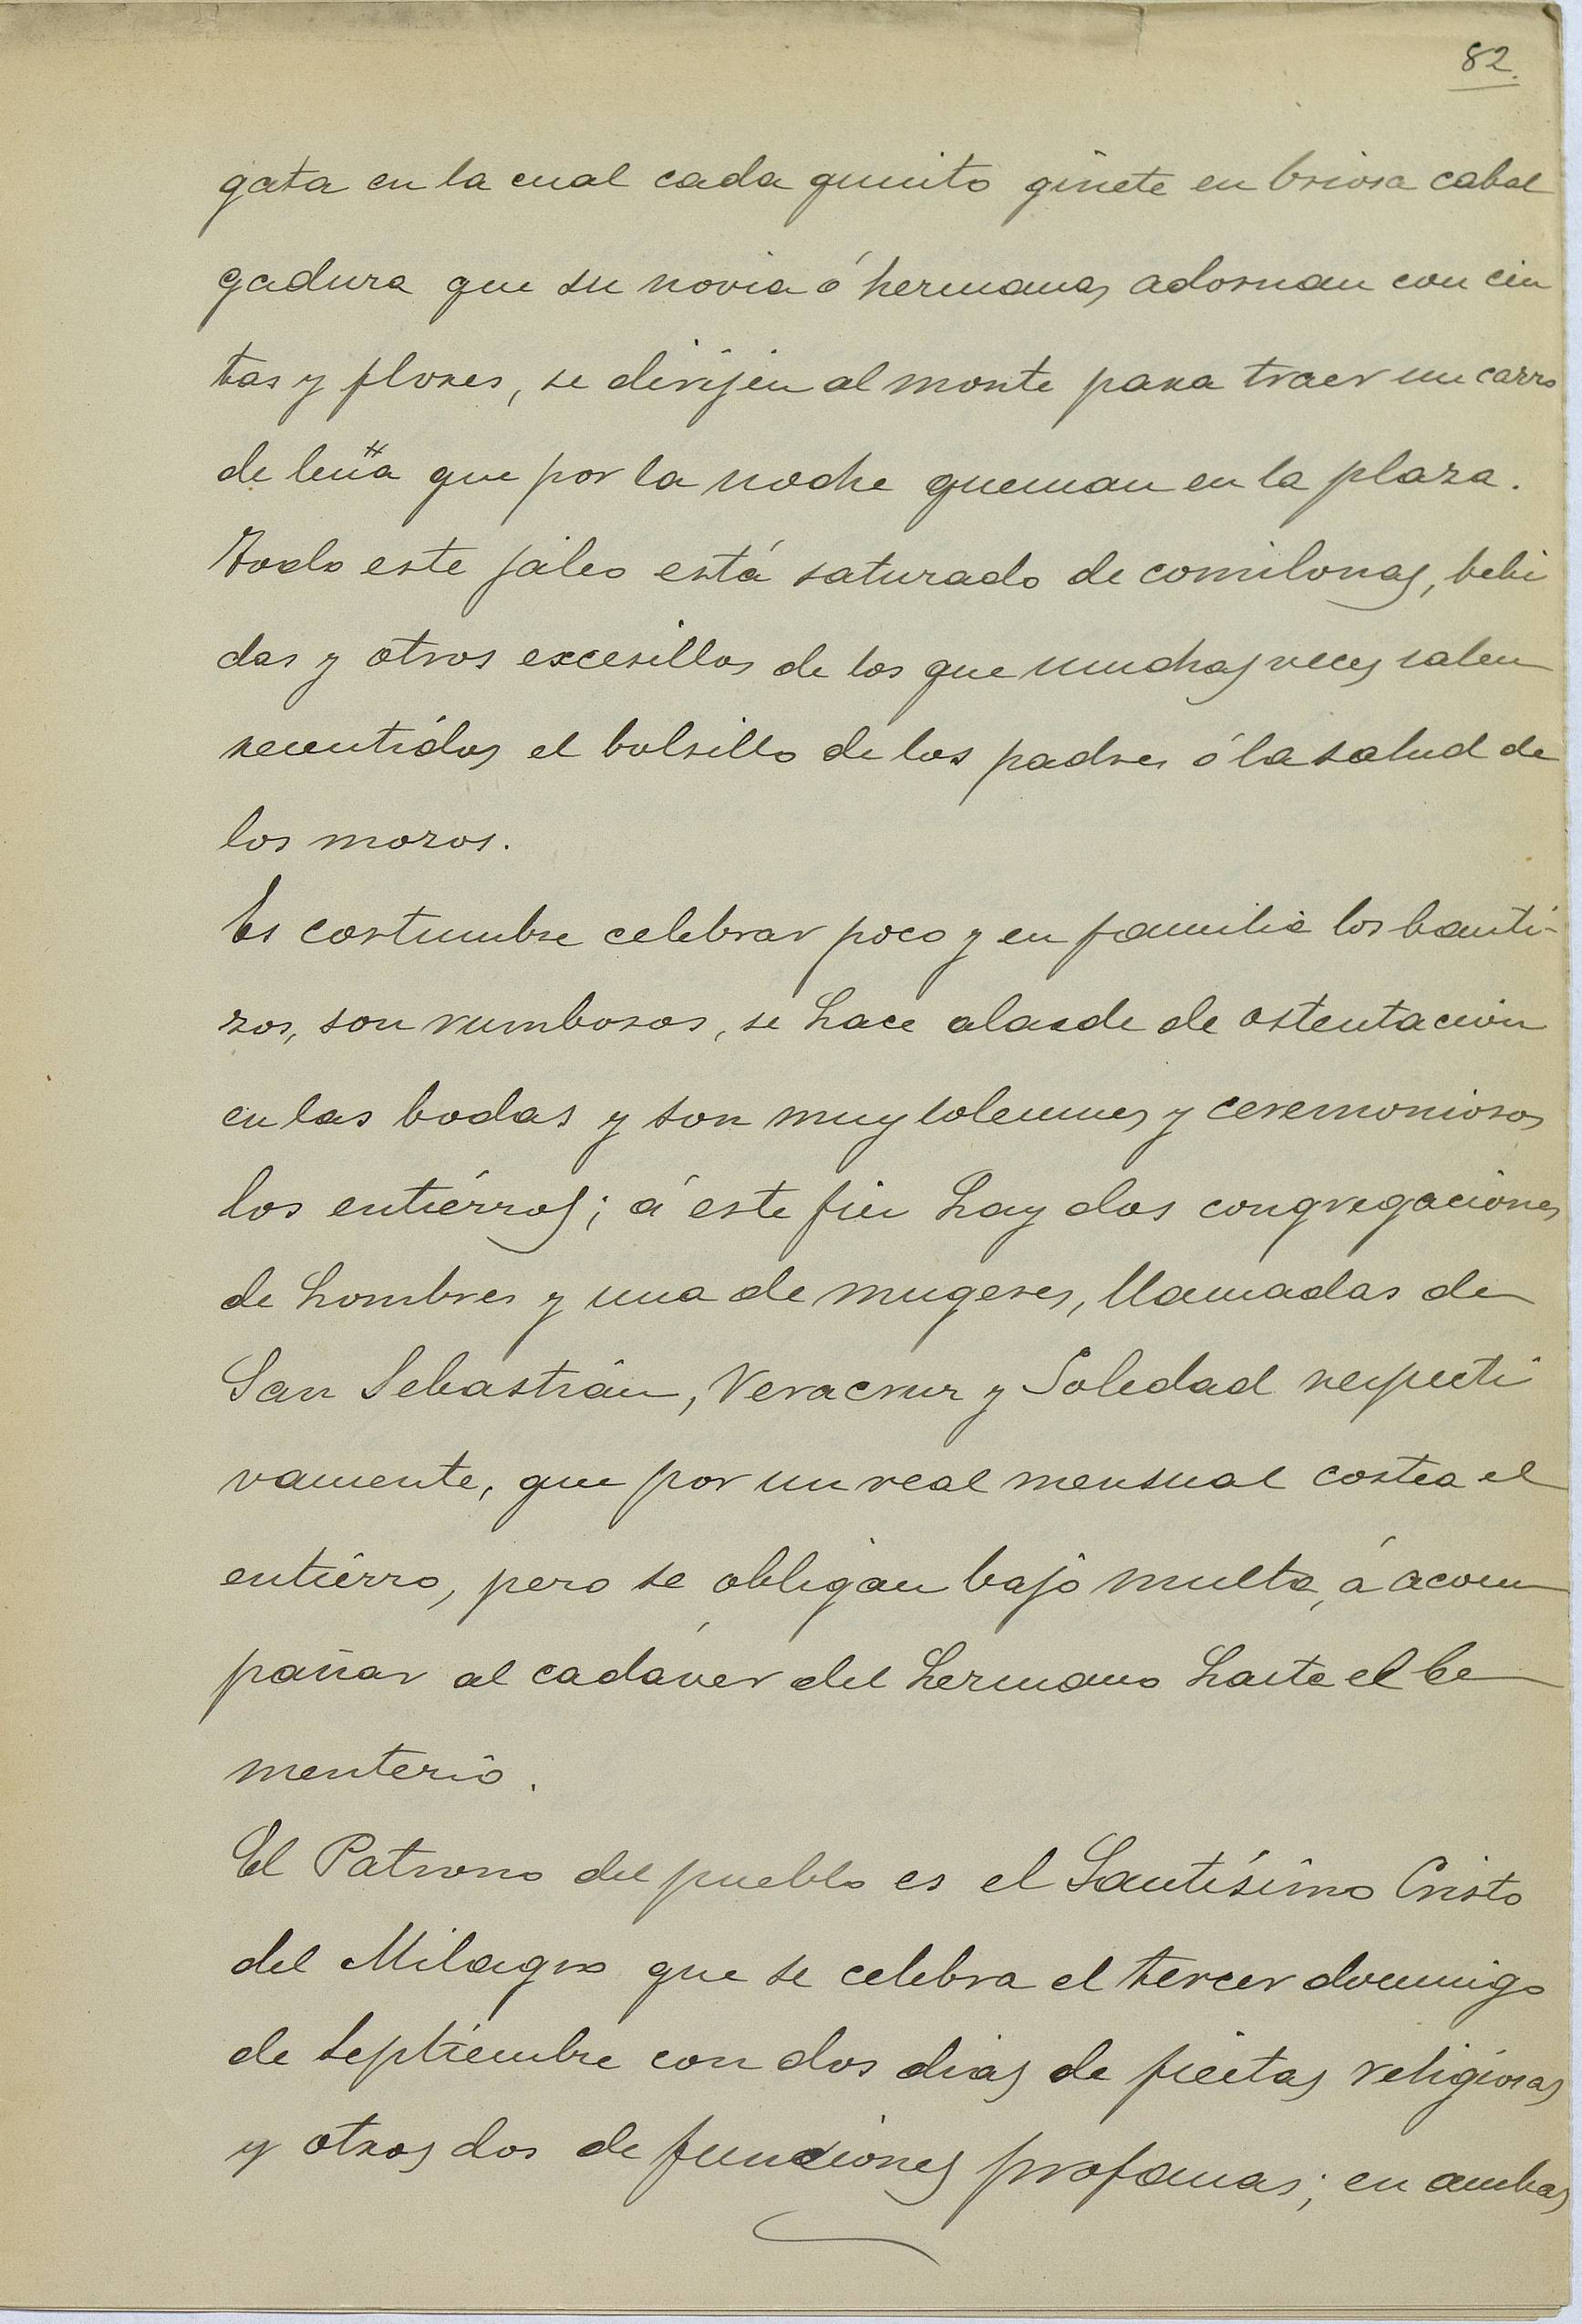 82.
gata en la cual cada quinto ginete en briosa cabal
gadura que su novia ó hermanas adornan con cin
tas y flores, se dirijen al monte para traer un carro
de leña que por la noche queman en la plaza.
Todo este jaleo está saturado de comilonas, bebi
das y otros excesillos de los que muchas veces salen
resentidos el bolsillo de los padres ó la salud de
los mozos.
Es costumbre celebrar poco y en familia los bauti-
zos, son rumbosos, se hace alarde de ostentación
en las bodas y son muy solemnes y ceremoniosos
los entierros; á este fin hay dos congregaciones
de hombres y una de mugeres, llamadas de
San Sebastián, Veracruz y Soledad respecti
vamente, que por un real mensual costea el
entierro, pero se obligan bajo multa, á acom
pañar al cadáver del hermano hasta el ce
menterio.
El Patrono del pueblo es el Santísimo Cristo
del Milagro que se celebra el tercer domingo
de Septiembre con dos dias de fiestas religiosas
y otros dos de funciones profanas; en ambas